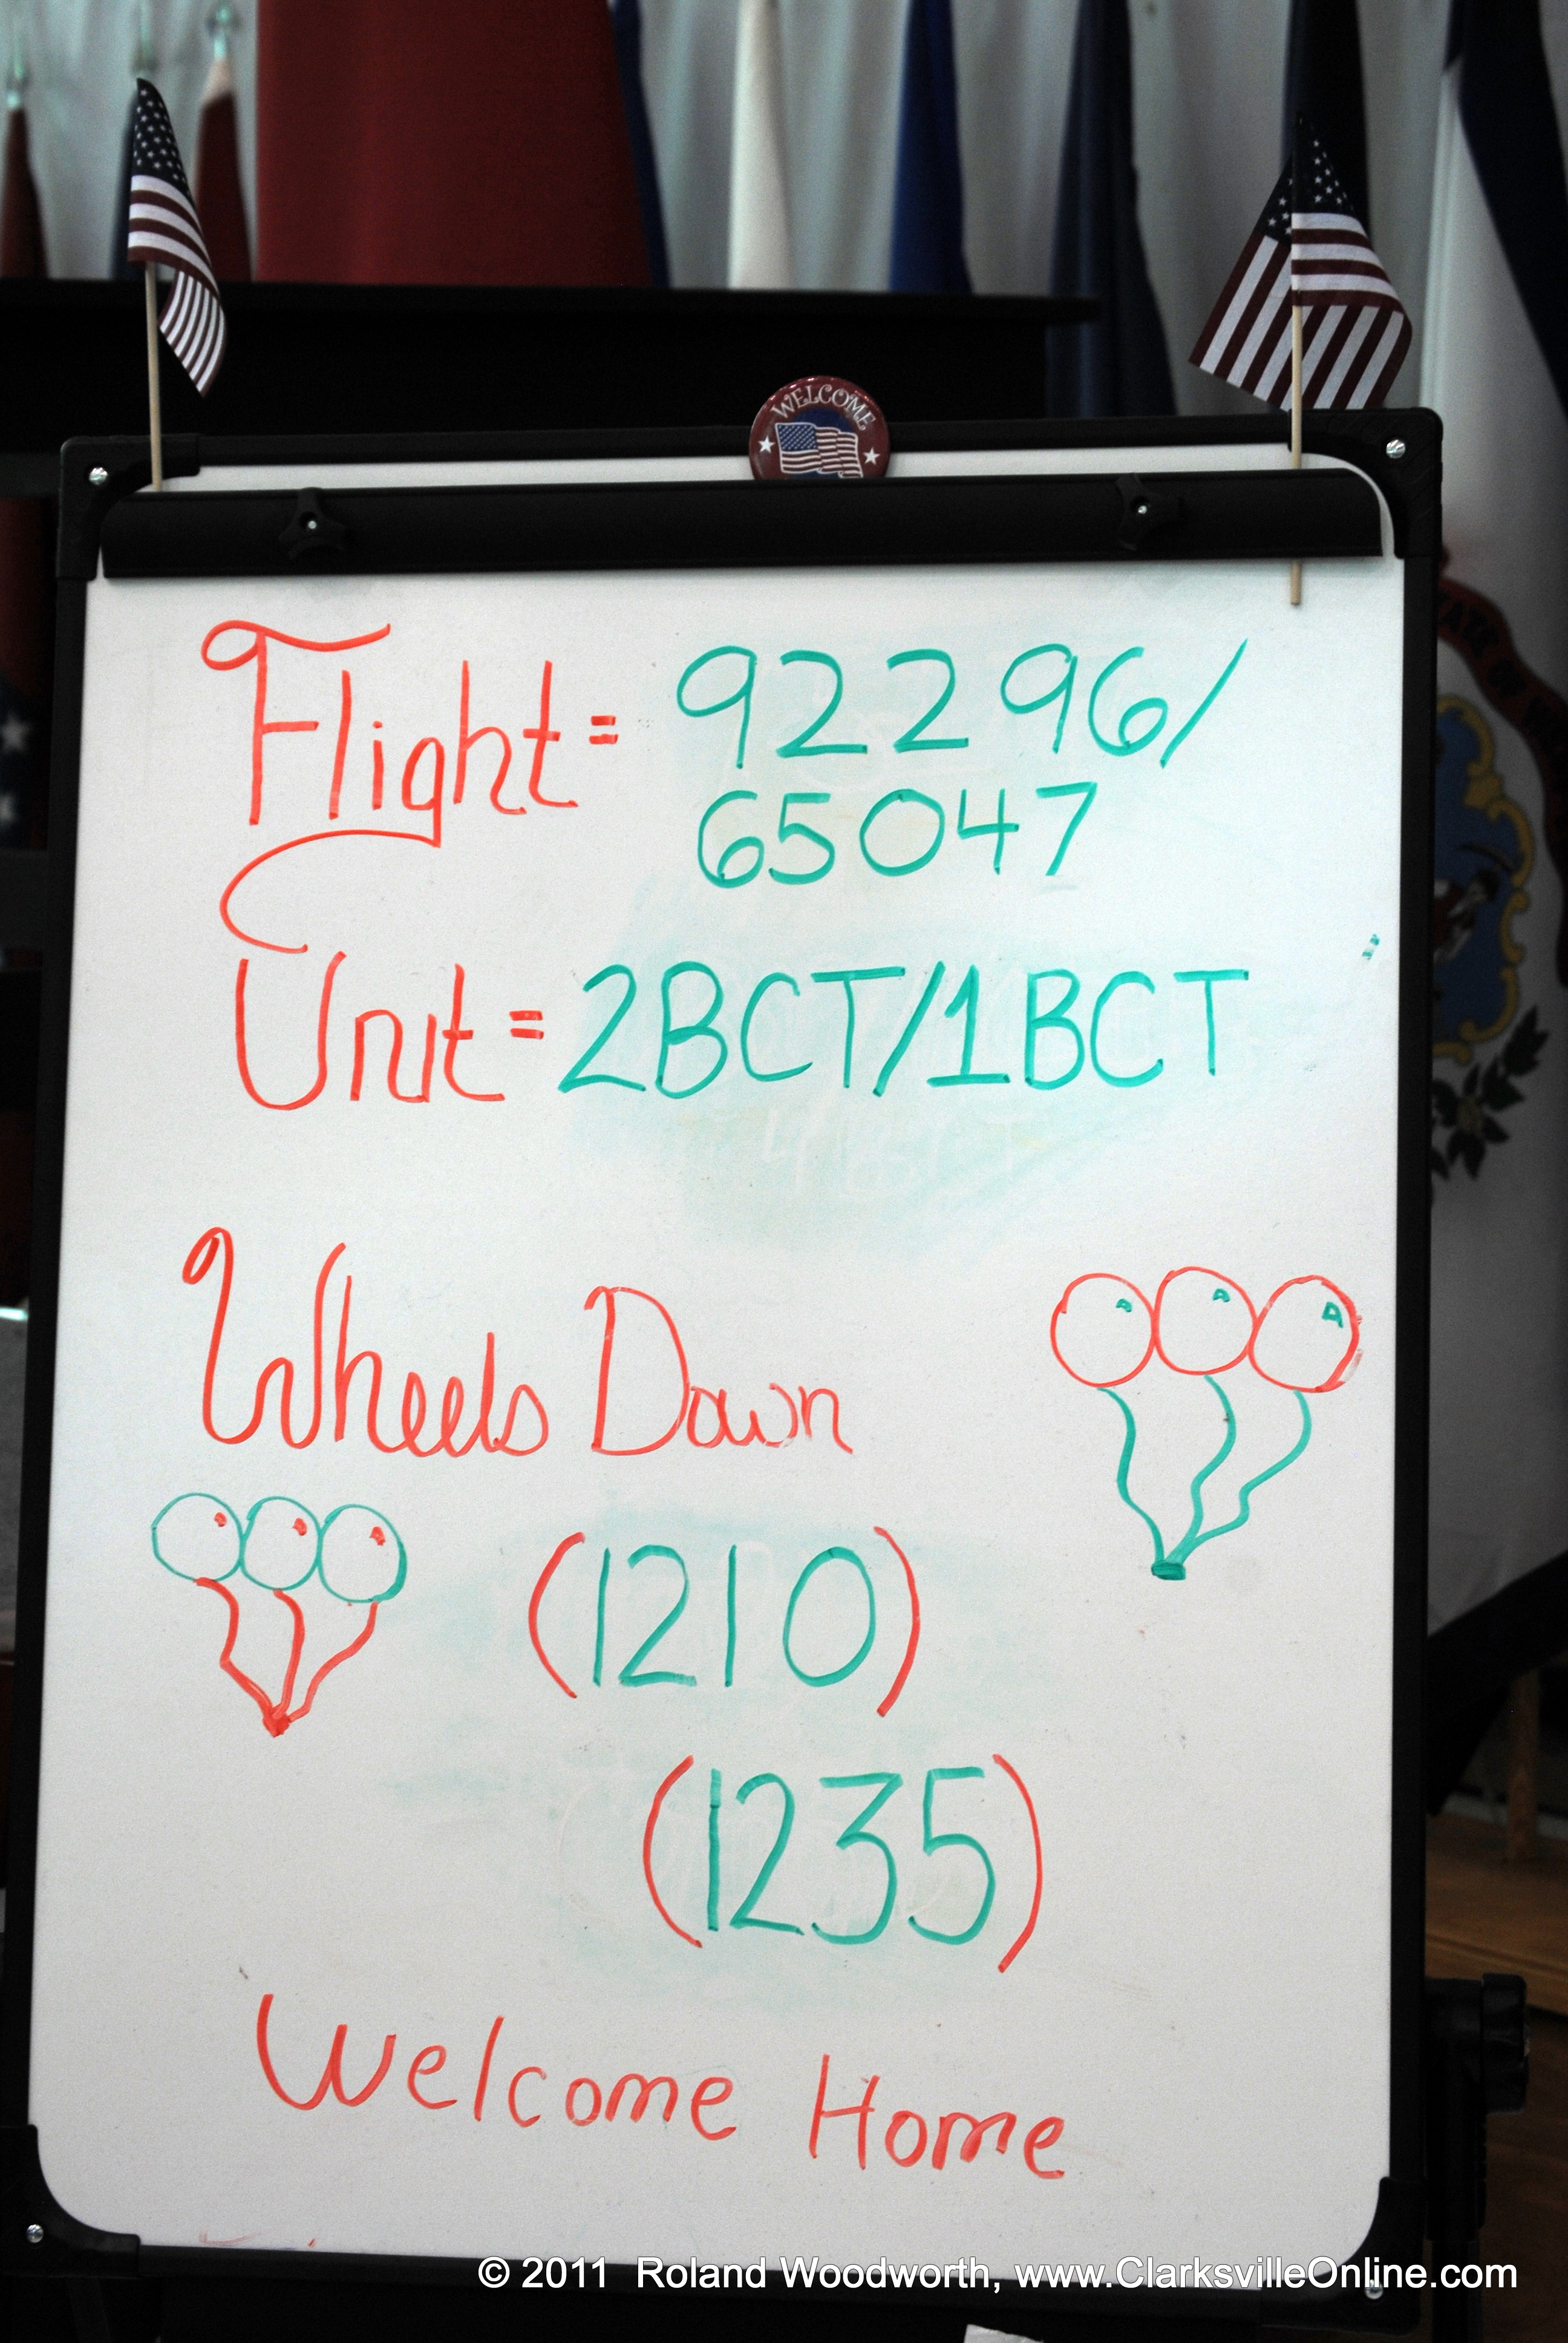 WELCOME
Flight = 92296/
65047
Unit = 2BCT/1BCT
Wheels Down
(1210)
(1235)
Welcome Home
© 2011 Roland Woodworth, www.ClarksvilleOnline.com